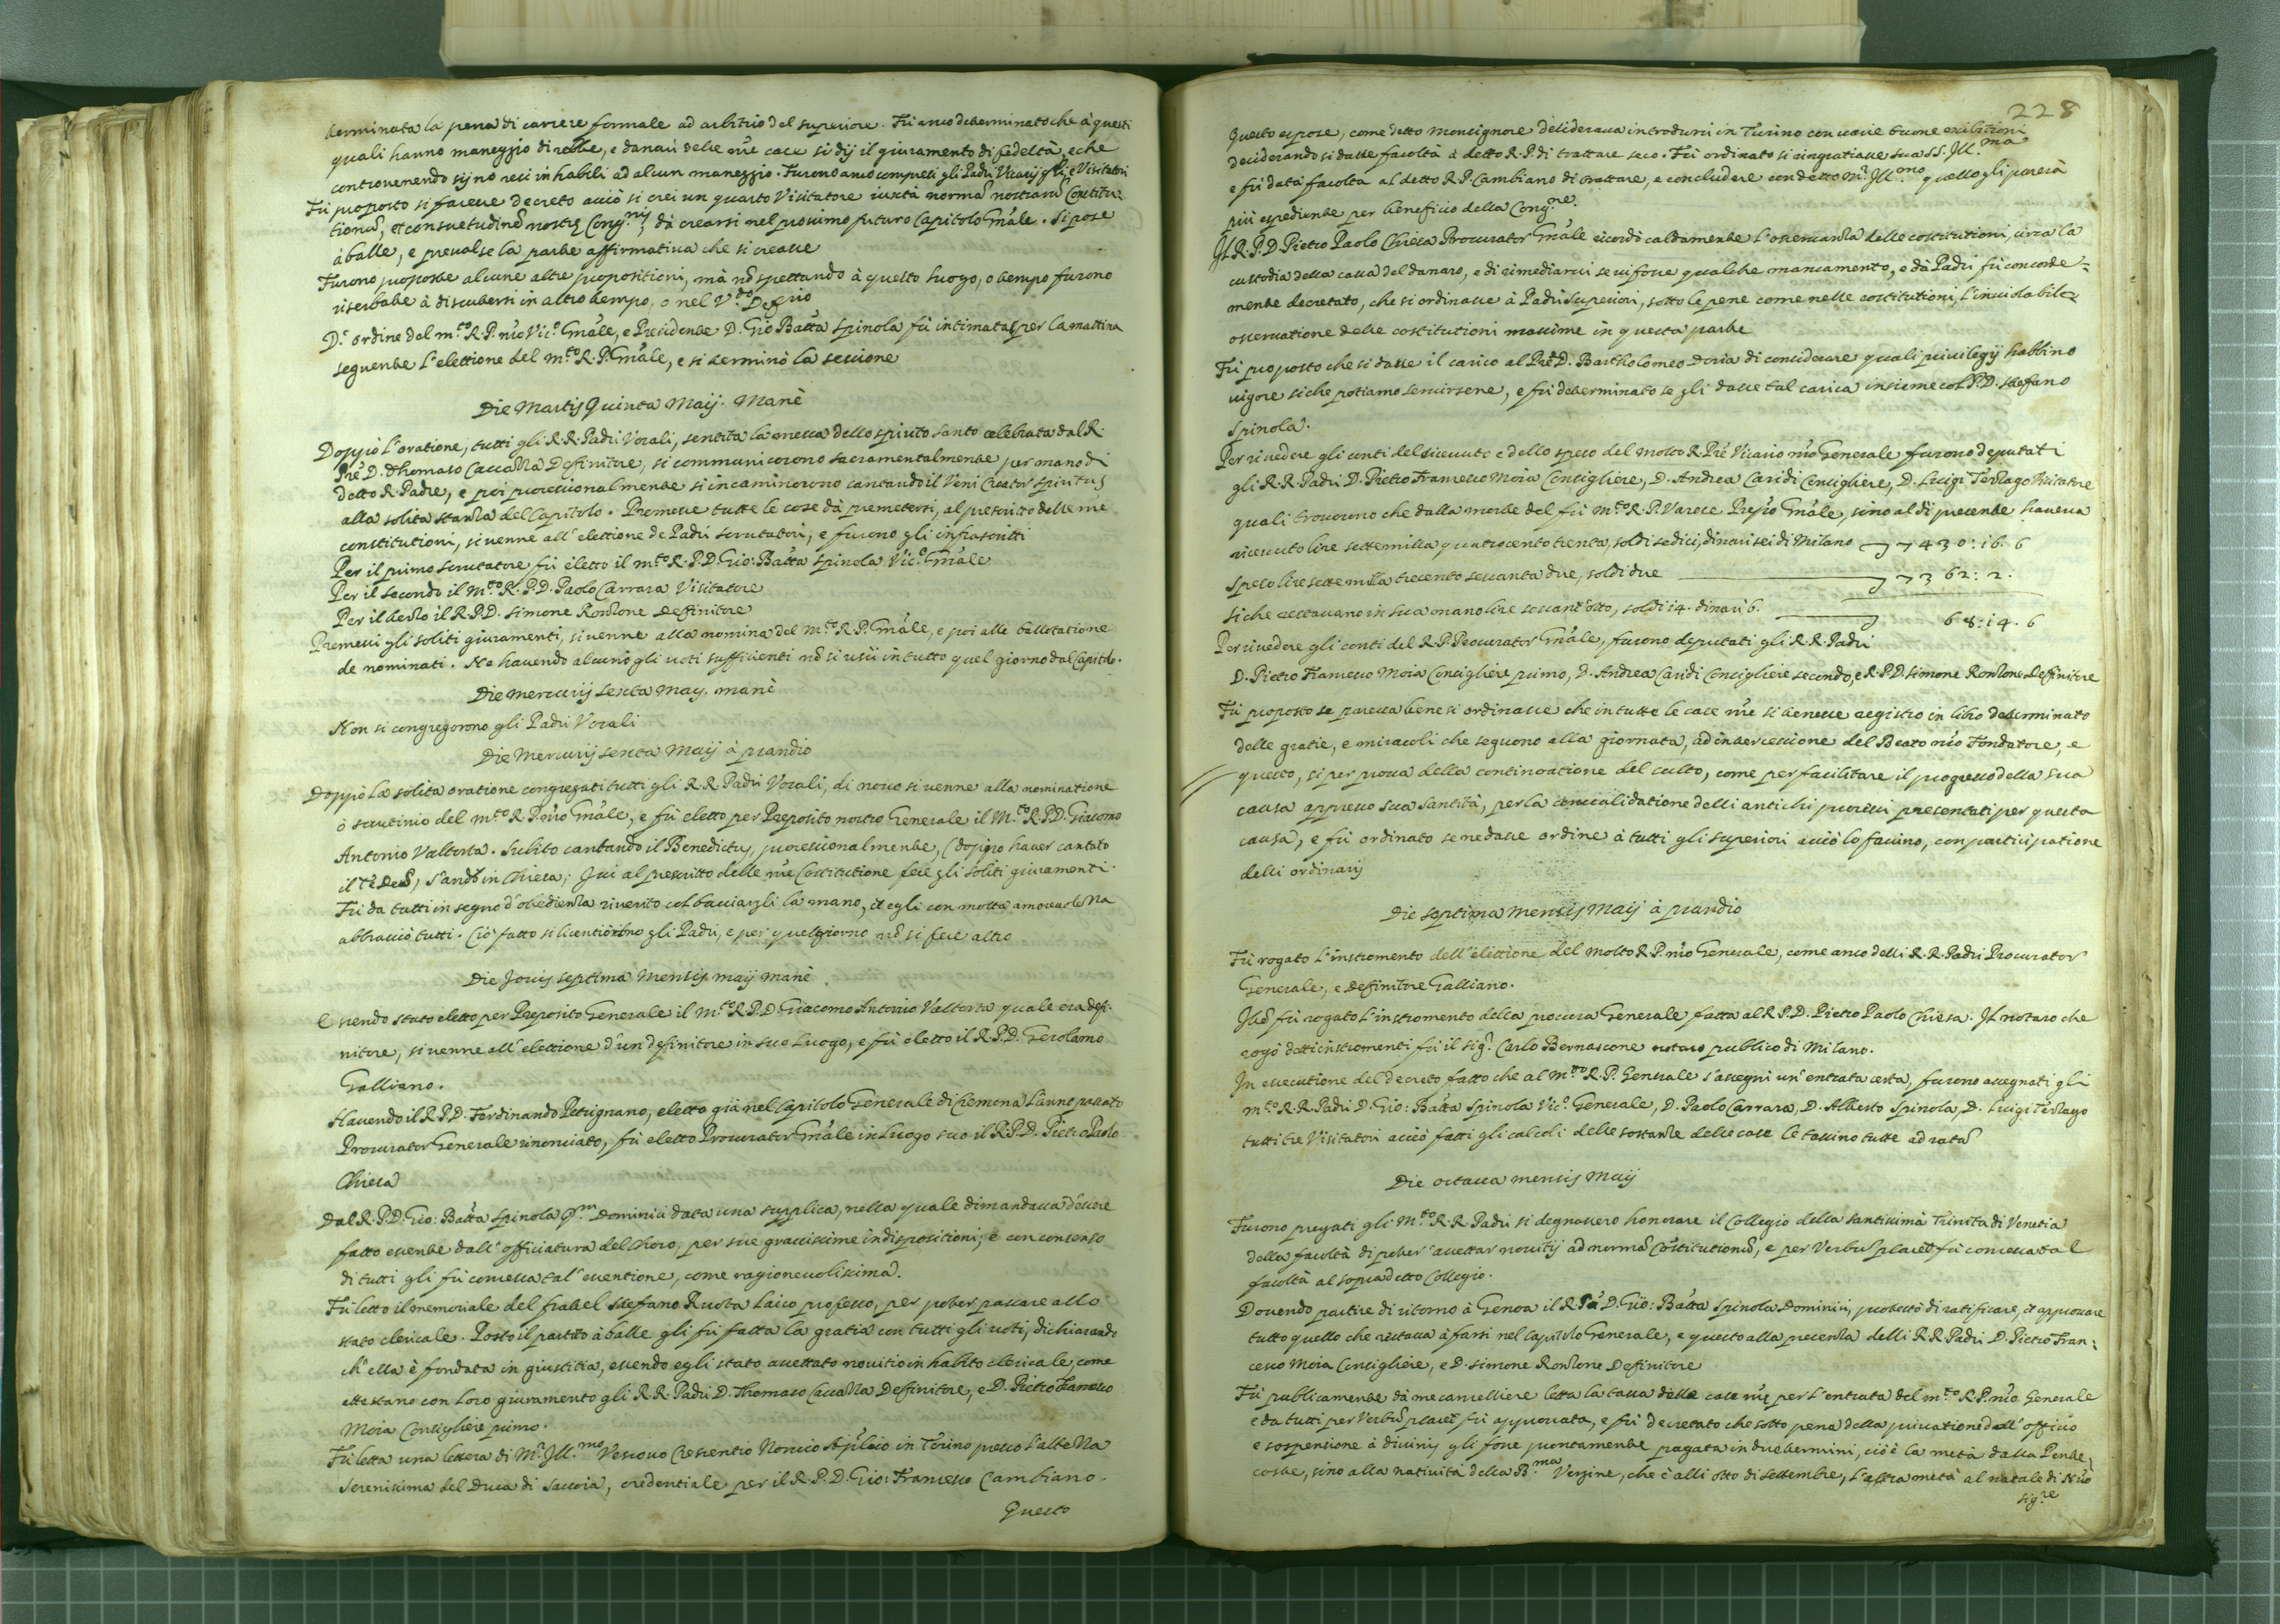 terminata la pena di carcere formale ad arbitrio del superiore. Fù anco determinato che à questi
quali hanno maneggio di robbe, e danari delle nre case si dij il giuramento di fedeltà, e che
controvenendo sijno resi inhabili ad alcun maneggio. Furono anco compresi gli Padri Vicarij gñli, e Visitatori
Fù proposto si facesse decreto acciò si crei un quarto Visitatore iuxta normã nostrarũ Constitu:
tionũ, et consuetudinẽ nostrę Congnis, dà crearsi nel prossimo futuro Capitolo Gñale. Si pose
à balle, e prevalse la parte affirmativa che si creasse
Furono proposte alcune altre propositioni, mà nõ spettando à questo luogo, o tempo furono
riserbate à discutersi in altro tempo, o nel V.do Deffrio
D'ordine del m.to R.P. nro Vic.o Gñale, e Presidente D. Gio Batta Spinola fù intimata per la mattina
seguente l'elettione del m.to R.P. Gñale, e si terminò la sessione
Die Martis Quinta Maij. Manè
Doppò l'oratione, tutti gli R.R. Padri Vocali, sentita la messa dello spirito santo celebrata dal R.
Pre D. Thomaso Caccatta Definitore, si communicorono sacramentalmente per mano di
detto R. Padre, e poi processionalmente si incaminorono cantando il Veni Creator spiritus
alla solita stanza del Capitolo. Premesse tutte le cose dà premettersi, al prescritto delle nre
constitutioni, si venne all'elettione de Padri scrutatori, e furono gli infrascritti
Per il primo scrutatore fù eletto il m.to R.P.D. Gio: Batta Spinola Vic.o Gñale
Per il secondo il M.to R.P.D. Paolo Carrara Visitatore
Per il terzo il R.P.D. Simone Ronzone Deffinitore
Premessi gli soliti giuramenti, si venne alla nomina del m.to R.P. Gñale, e poi alle ballotatione
de nominati. Ne havendo alcuno gli voti sufficienti nõ si uscì in tutto quel giorno dal Capitolo.
Die Mercurij Sexta May. manè
Non si congregorono gli Padri Vocali
Die Mercurij sexta Maij à prandio
Doppò la solita oratione congregati tutti gli R.R. Padri Vocali, di novo si venne alla nominatione
ò scrutinio del m.to R.P. nro Gñale, e fù eletto per Preposito nostro Generale il M.to R.P.D. Giacomo
Antonio Valtorta. Subito cantando il Benedictus, processionalmente, (doppo haver cantato
il Tè Deũ) s'andò in Chiesa; Ivi al prescritto delle nre Costitutione fece gli soliti giuramenti.
Fù da tutti in segno d'obedienza riverito col bacciargli la mano, et egli con molta amorevolezza
abbracciò tutti. Ciò fatto si licentiorono gli Padri, e per quel giorno nõ si fece altro
Die Jovis septima Mensis maij manè
Essendo stato eletto per Preposito Generale il M.to R.P.D. Giacomo Antonio Valtorta quale era defi:
nitore, si venne all'elettione d'un definitore in suo luogo, e fù eletto il R.P.D. Gerolamo
Galliano.
Havendo il R.P.D. Ferdinando Petrignano, eletto già nel Capitolo Generale di Cremona l'anno passato
Procurator Generale rinonciato, fù eletto Procurator Gñale in luogo suo il R.P.D. Pietro Paolo
Chiesa
Dal R.P.D. Gio: Batta Spinola q.m Dominici data una supplica, nella quale dimandava d'essere
fatto essente dall'officiatura del Choro, per sue gravissime indispositioni; e con consenso
di tutti gli fù concessa tal'essentione, come ragionevolissima.
Fù letto il memoriale del fratel Steefano Ruota Laico professo, per poter passare allo
stato clericale. Posto il partito à balle gli fù fatta la gratia con tutti gli voti, dichiarando
ch'ella è fondata in giustitia, essendo egli stato accettato novitio in habito clericale, come
attestano con loro giuramento gli R.R. Padri D. Thomaso Caccatta Deffinitore, e D. Pietro Francesco
Moia Consigliere primo.
Fù letta una lettera di M.r Ill.mo Vescovo Crescentio Noncio Applico in Torino presso l'altezza
Serenissima del Duca di Savoia, credentiale per il R.P.D. Gio: Francesco Cambiano.
Questo
228
Questo espose, come detto Monsignore desiderava introdurci in Turino con varie buone exibitioni
desiderando si dasse facoltà à detto R.P. di trattare seco. Fù ordinato si ringratiasse sua SS. Ill.ma
e fù data facoltà al detto R.P. Cambiano di trattare, e concludere con detto M.r Ill.mo quello gli parerà
più espediente per beneficio della Cong.ne
Il R.P.D. Pietro Paolo Chiesa Procurator Gñale ricordò caldamente l'osservanza delle costitutioni, circa la
custodia della cassa del danaro, e di rimediarvi se vi fosse qualche mancamento, e dà Padri fù concorde=
mente decretato, che si ordinasse à Padri Superiori, sotto le pene come nelle costitutioni, l'inviolabile
osservatione delle costitutioni massime in questa parte
Fù proposto che si dasse il carico al Pre D. Bartholomeo Doria di considerare quali privilegij habbino
vigore si che potiamo servirsene, e fù determinato se gli dasse tal carica insieme col P.D. Stefano
Spinola.
Per rivedere gli conti del ricevuto e dello speso del Molto R. Pre Vicario nro Generale furono deputati
gli R.R. Padri D. Pietro Francesco Moia Consigliere, D. Andrea Caridi Consigliere, D. Luigi Terzago Visitatore
quali trovorono che dalla morte del fù m.to R.P. Varese Prepto Gñale, sino al dì presente haveva
ricevuto lire settemilla quatrocento trenta, soldi sedici, dinari sei di Milano 7430: 16. 6
Speso lire sette milla trecento sessanta due, soldi due 7362: 2.
Si che restavano in sua mano lire sessant'otto, soldi 14. dinari 6. 68: 14. 6
Per rivedere gli conti del R.P. Procurator Gñale, furono deputati gli R.R. Padri
D. Pietro Francesco Moia Consigliere primo, D. Andrea Caridi Consigliere secondo, e R.P.D. Simone Ronzone Deffinitore
Fù proposto se paressa bene si ordinasse che in tutte le case nre si tenesse registro in libro determinato
delle gratie, e miracoli che seguono alla giornata, ad intercessione del Beato nro Fondatore, e
questo, si per prova della continoatione del culto, come per facilitare il progresso della sua
causa appresso sua Santità, per la convalidatione delli antichi processi presentati per questa
causa, e fù ordinato se ne dasse ordine à tutti gli superiori acciò lo faccino, con participatione
delli ordinarij
Die septima Mensis Maij à prandio
Fù rogato l'instromento dell'elettione del Molto R.P. nro Generale, come anco delli R.R. Padri Procurator
Generale, e Definitore Galliano.
Itẽ fù rogato l'instromento della procura Generale fatta al R.P.D. Pietro Paolo Chiesa. Il notaro che
rogò detti instromenti fù il Sig.r Carlo Bernascone notaro publico di Milano.
In essecutione del decreto fatto che al m.to R.P. Generale s'assegni un'entrata certa, furono assegnati gli
m.to R.R. Padri D. Gio: Batta Spinola Vic.o Generale, D. Paolo Carrara, D. Alberto Spinola, D. Luigi Terzago
tutti tre Visitatori acciò fatti gli calcoli delle sostanze delle case le tassino tutte ad ratã
Die octava mensis Maij
Furono pregati gli M.to R.R. Padri si degnassero honorare il Collegio della santissima Trinità di Venetia
della facoltà di poter accettar novitij ad normã Cõstitutionũ, e per Verbũ placet fù concessa tal
facoltà al sopradetto Collegio.
Dovendo partire di ritorno à Genoa il R. Pre D. Gio: Batta Spinola Dominici, protestò di ratificare, et approvare
tutto quello che restava à farsi nel Capitolo Generale, e questo alla presenza delli R.R. Padri D. Pietro Fran:
cesco Moia Consigliere, e D. Simone Ronzone Definitore
Fù publicamente dà me cancelliere letta la tassa delle case nrę per l'entrata del m.to R.P. nro Generale
e da tutti per Verbũ placet fù approvata, e fù decretato che sotto pena della privatione dell'officio
e sospensione à divinis gli fosse prontamente pagata in due termini, cioè la metà dalla Pente:
coste, sino alla natività della B.ma Vergine, che è alli otto di Settembre, l'altra metà al natale di Nro
Sig.re